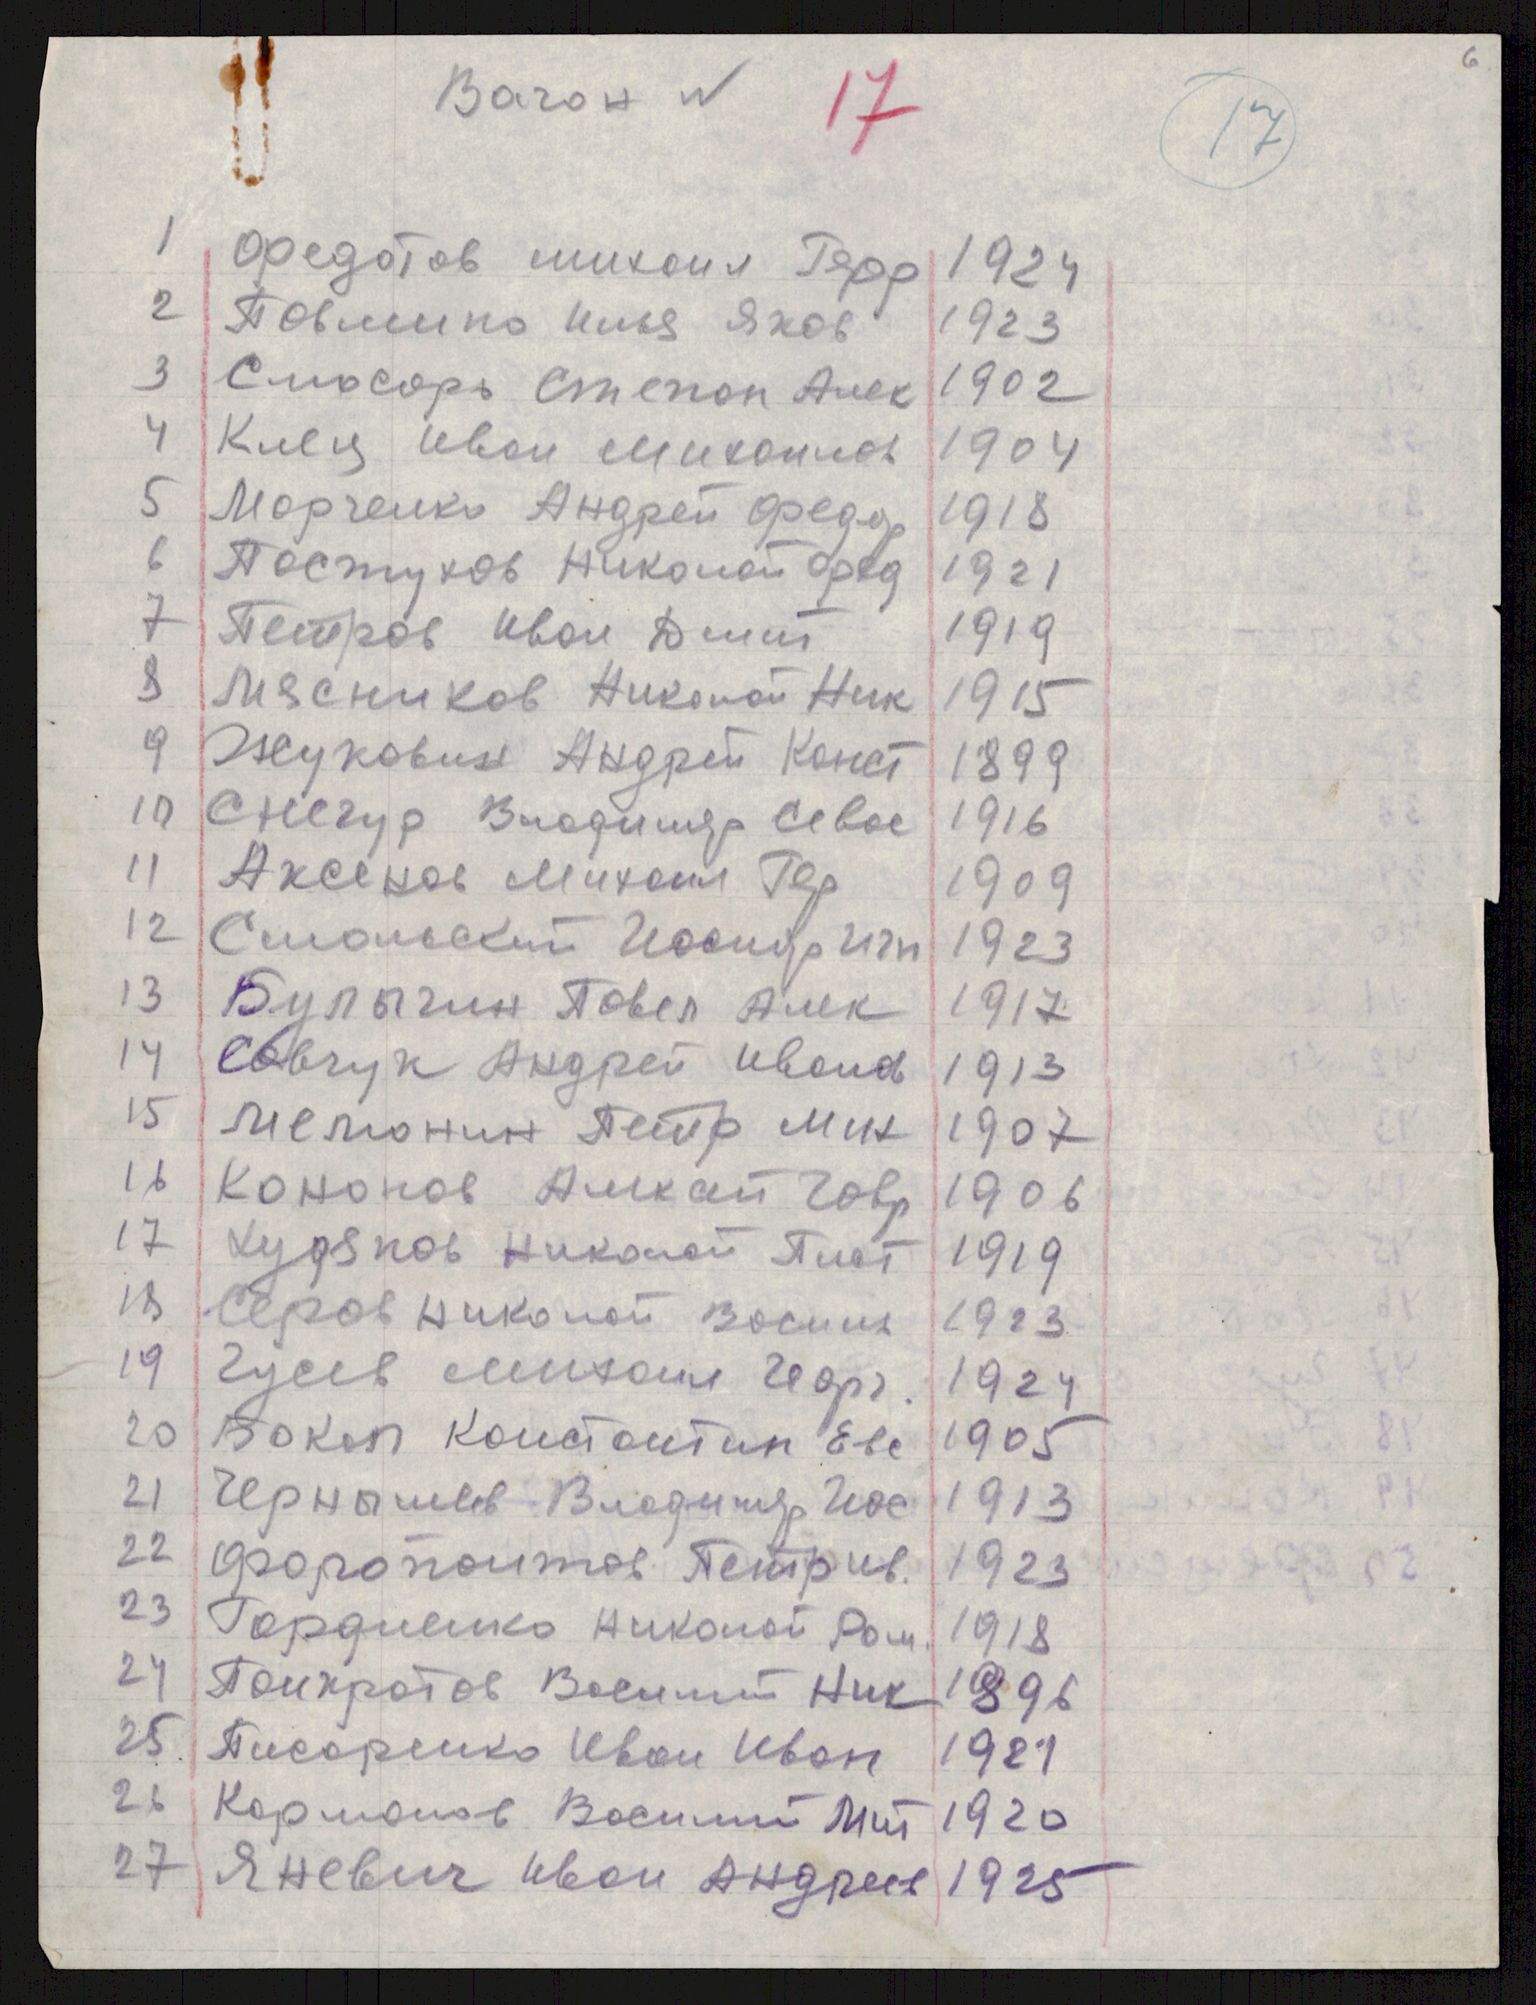 6
Вагон № 17
17
1 Федотов Михаил Терр 1924
2 Павлико Илья Яков 1923
3 Слюсарь Степан Алек 1902
4 Клец Иван Михаилов 1904
5 Марченко Андрей Федор 1918
6 Пастухов Николай Фед 1921
7 Петров Иван Дмит 1919
8 Мясников Николай Ник 1915
9 Жукович Андрей Конст 1899
10 Снегур Владимир Севас 1916
11 Аксенов Михаил Гер 1909
12 Смольский Иосиф Игн 1923
13 Булыгин Павел Алек 1917
14 Савчук Андрей Иванов 1913
15 Мелюнин Петр Мих 1907
16 Кононов Алексей Гавр 1906
17 Худяков Николай Плат 1919
18 Серов Николай Васил 1923
19 Гусев Михаил Георг. 1924
20 Вакал Константин Евс 1905
21 Чернышев Владимир Иос 1913
22 Фарапонтов Петр Ив. 1923
23 Гордиенко Николай Ром. 1918
24 Панкратов Василий Ник 1896
25. Писаренко Иван Иван 1921
26 Карманов Василий Мит 1920
27 Яневич Иван Андреев 1925